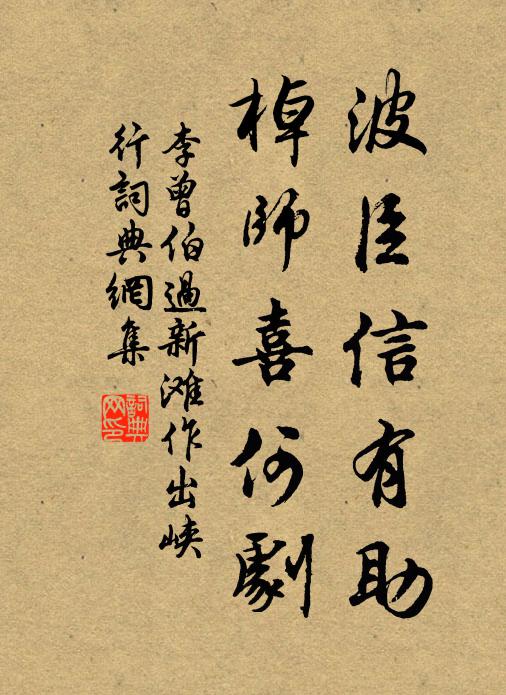 波臣信有助
棹師喜何劇
李曾伯過新滩作出峡
行詞典網集
詞典
网印